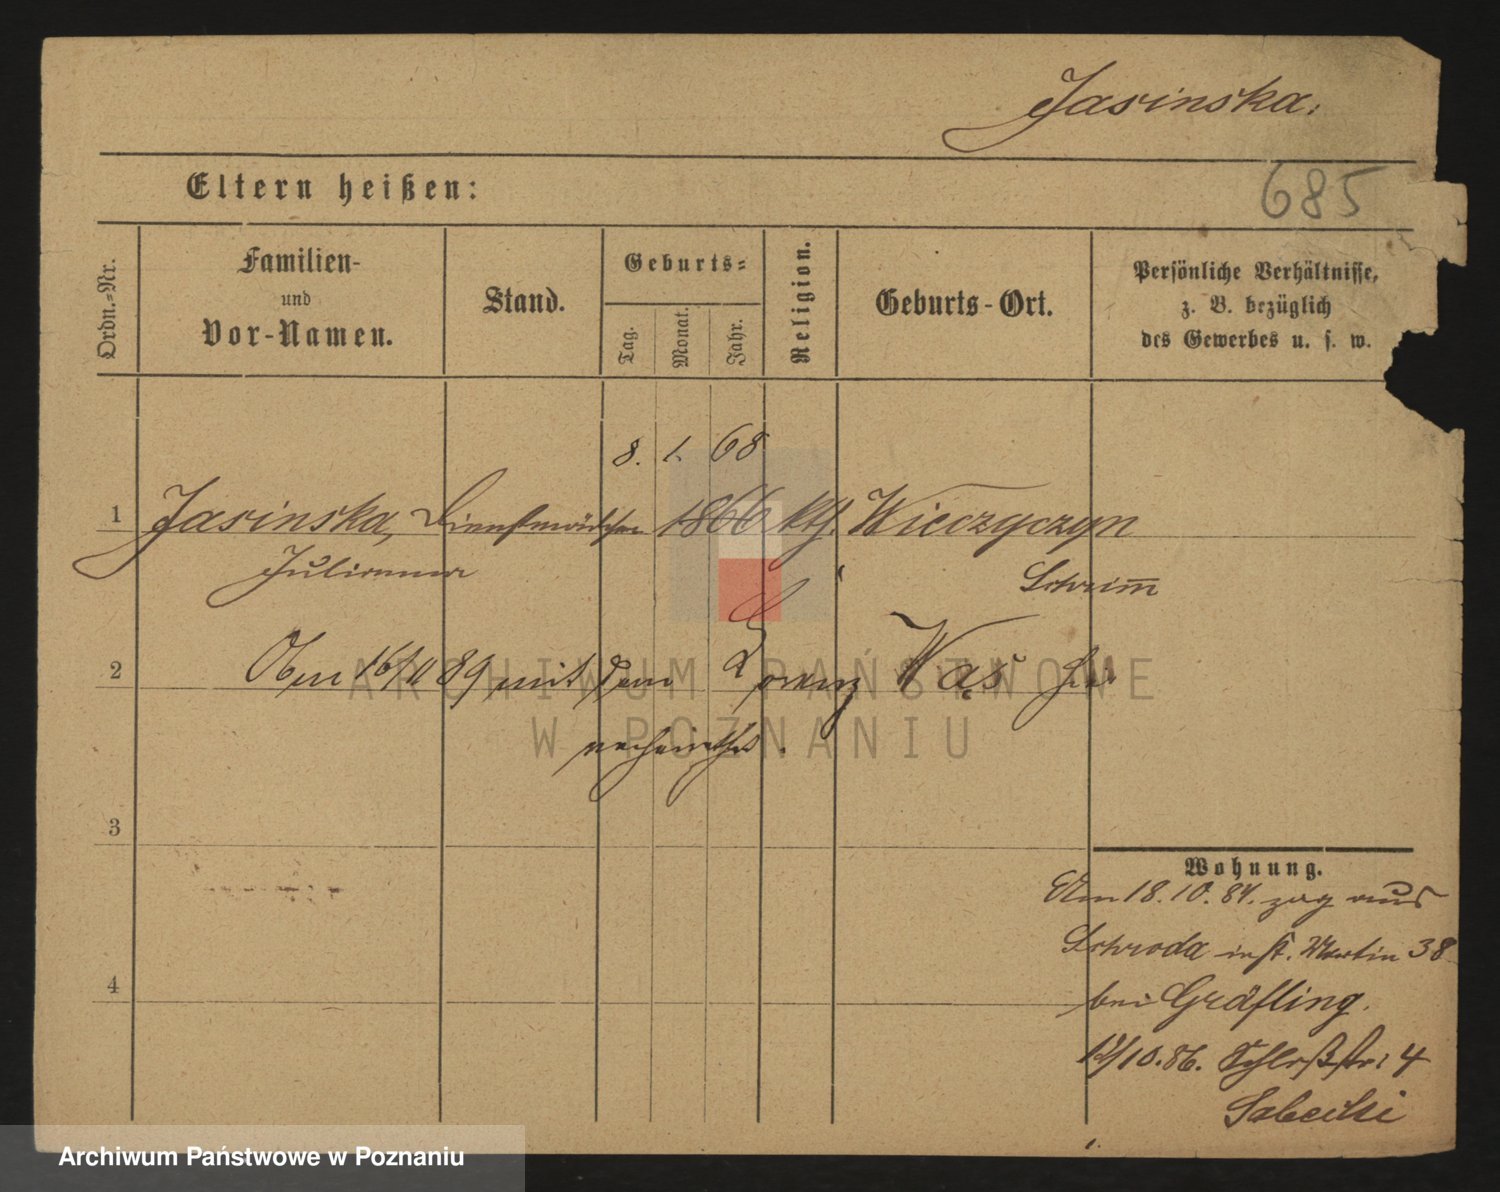 Jasinska.
Eltern heißen:
685
Ordn.-Nr.
Familien-
und
Vor-Namen.
Stand.
Geburts-
Tag.
Monat.
Jahr.
Religion.
Geburts-Ort.
Persönliche Verhältnisse,
z. B. bezüglich
des Gewerbes u. s. w.
8. 1. 68
1 Jasinska, Dienstmädchen 1866 kth. Wieczyczyn
Julianna Schrimm
2 Am 16/11 89 mit dem Lorenz Wąs hier
verheirathet.
3
Wohnung.
Am 18.10.84. zog aus
Schroda in St. Martin 38
bei Gräfling.
4
10.86. Schloßstr. 4
ARCHIWUM PAŃSTWOWE
W POZNANIU
Archiwum Państwowe w Poznaniu